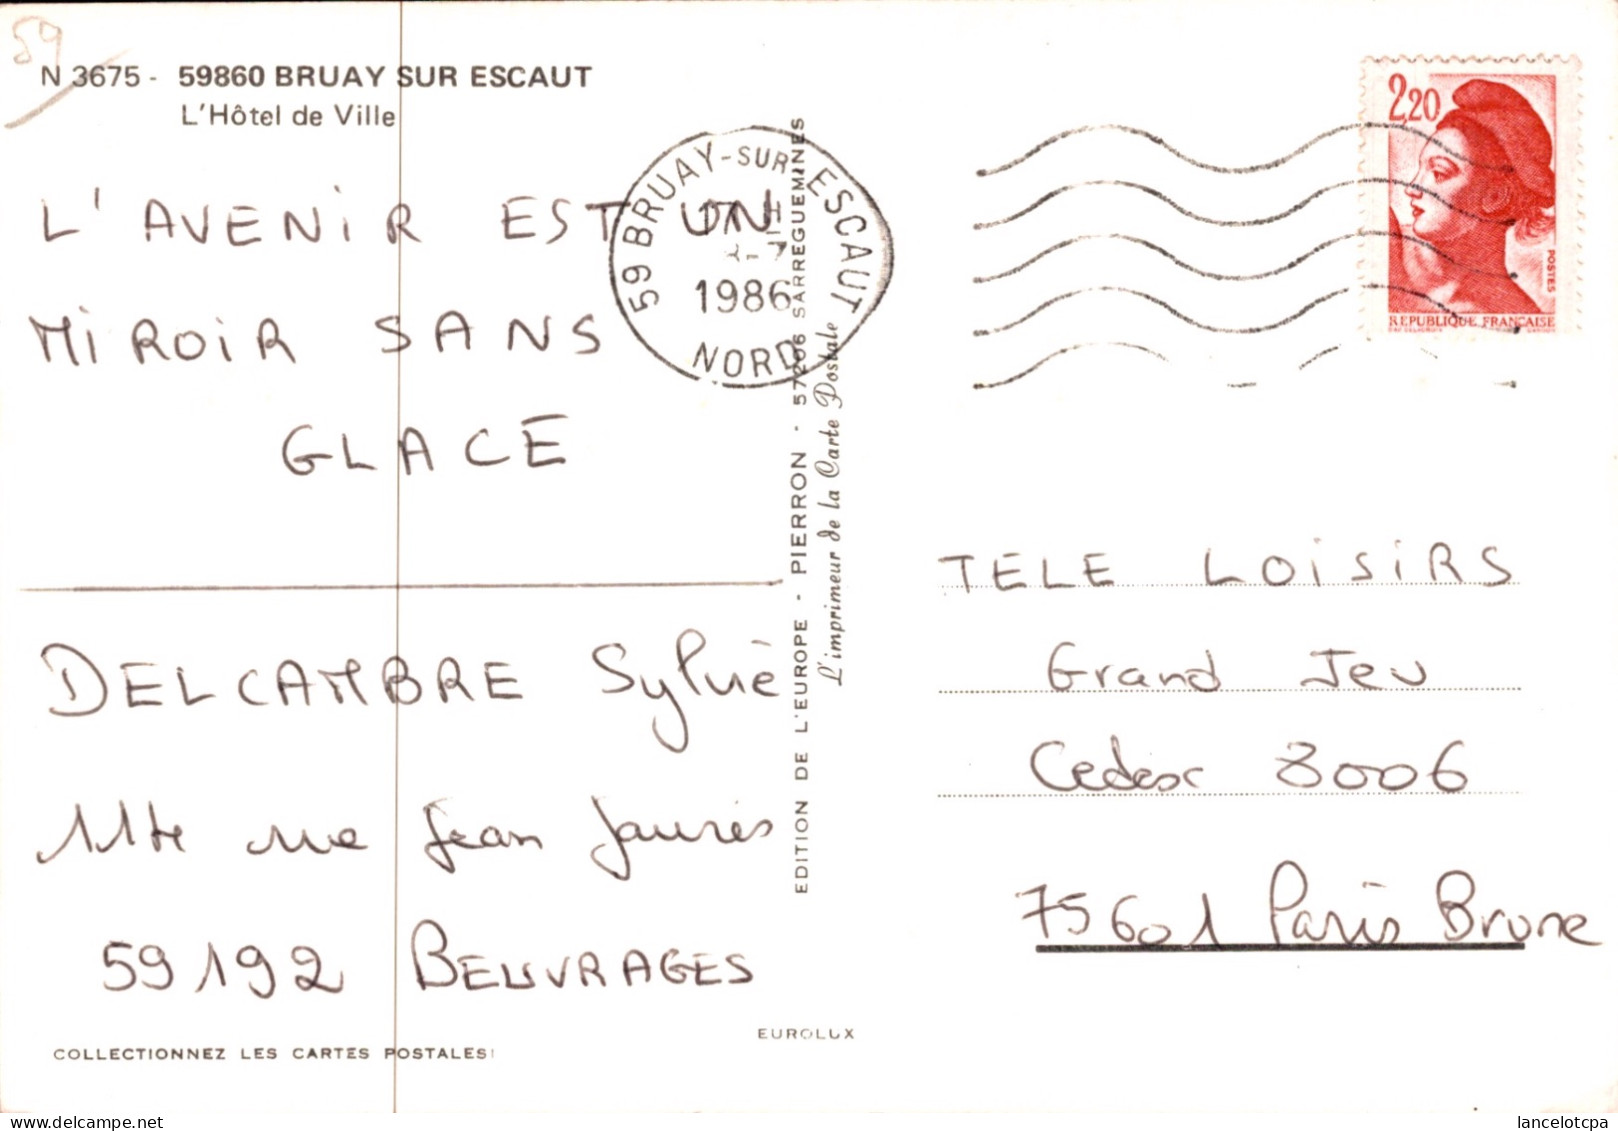 59
N 3675 - 59860 BRUAY SUR ESCAUT
L'Hôtel de Ville
L'AVENIR EST UN
MIROIR SANS
GLACE
DELCAMBRE Sylvie
rue Jean Jaurès
59192 BEUVRAGES
COLLECTIONNEZ LES CARTES POSTALES!
EUROLUX
EDITION DE L'EUROPE - PIERRON - 57206 SARREGUEMINES
L'imprimeur de la Carte Postale
59 BRUAY-SUR-ESCAUT
1986
NORD
2,20
POSTES
REPUBLIQUE FRANÇAISE
TELE LOISIRS
Grand Jeu
Cedex 3006
75601 Paris Brune
www.delcampe.net
lancelotcpa